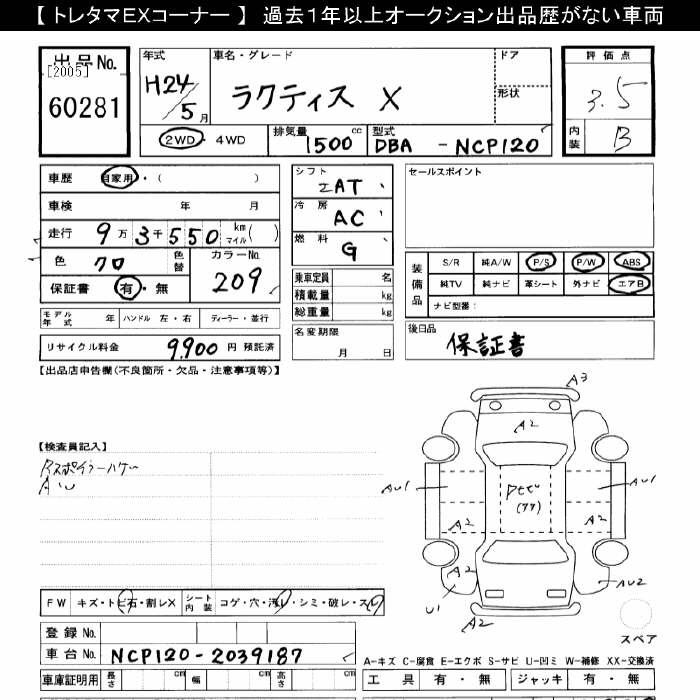 【トレタマEXコーナー】 過去1年以上オークション出品歴がない車両
出品No.
[2005]
60281
年式 H24/5月
車名・グレード
ラクティス X
ドア
形状
評価点
3.5
内装 B
2WD・4WD
排気量 1500cc
型式 DBA - NCP120
車歴 自家用・( )
車検 年 月
走行 9万3千550 km マイル( )
色 クロ 色替 カラーNo. 209
保証書 有・無
モデル年式 年 ハンドル 左・右 ディーラー・並行
リサイクル料金 9,900円 預託済
シフト エAT
冷房 AC
燃料 G
乗車定員 名
積載量 kg
総重量 kg
名変期限
月 日
セールスポイント
装備品
S/R 純A/W P/S P/W ABS
純TV 純ナビ 革シート 外ナビ エアB
ナビ型番:
後日品
保証書
【出品店申告欄(不良箇所・欠品・注意事項等)】
【検査員記入】
Rスポイラーハゲ
A3
A2
AU1
AU1
A2
A2
A2
AU2
U1
A2
スペア
FW キズ・トビ石・割レX シート内装 コゲ・穴・汚レ・シミ・破レ・スレ
登録No.
車台No. NCP120-2039187
A-キズ C-腐食 E-エクボ S-サビ U-凹ミ W-補修 XX-交換済
車庫証明用 長さ cm 幅 cm 高さ cm
工具 有・無 ジャッキ 有・無